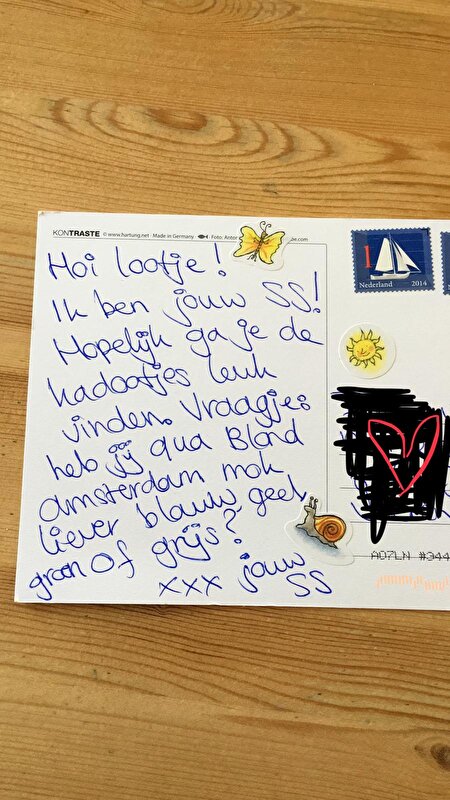 KONTRASTE © www.hartung.net · Made in Germany · Foto: Anter
be.com
Hoi lootje!
Ik ben jouw SS!
Hopelijk ga je de
kadootjes leuk
vinden. Vraagje:
heb jij qua Blond
amsterdam mok
liever blauw, geel,
groen of grijs?
xxx jouw
SS
1
Nederland 2014
AD7LN #344